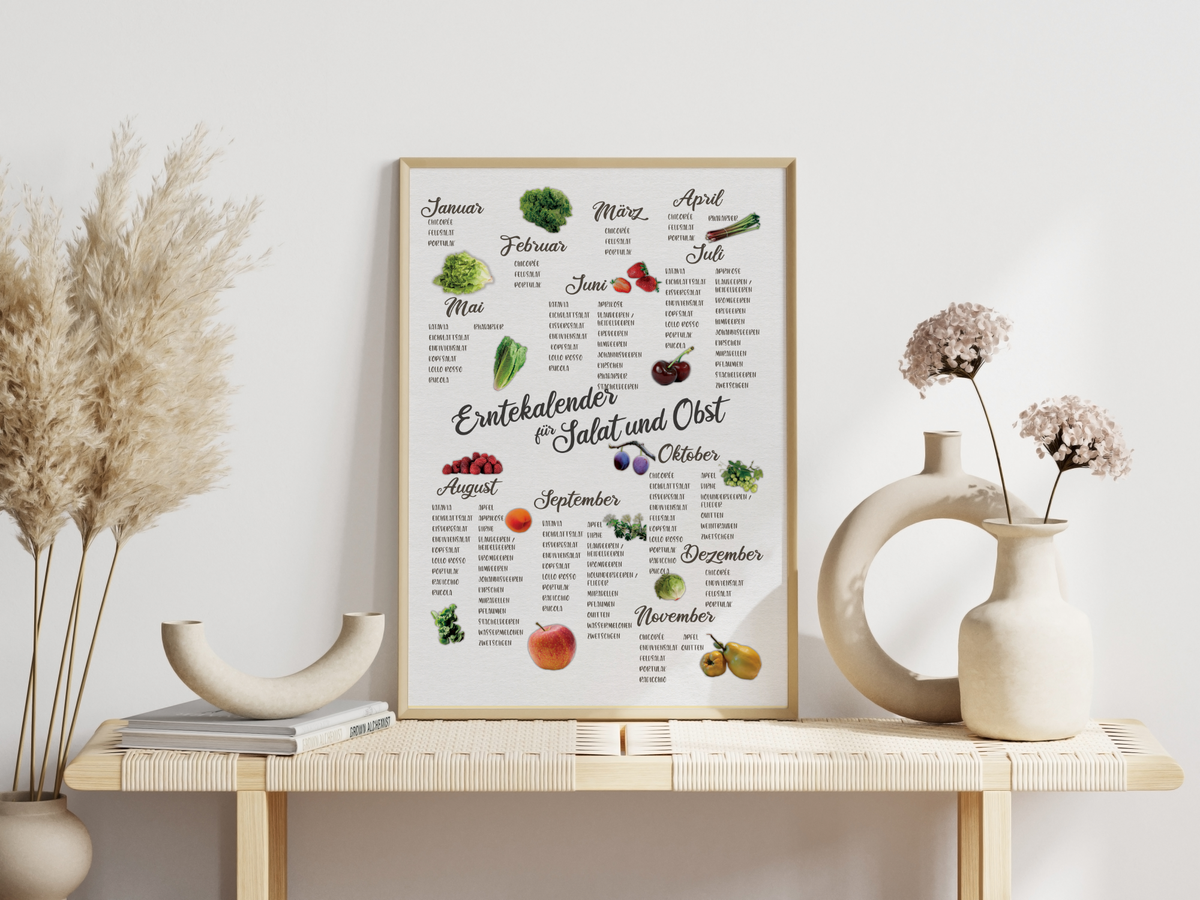 Januar
CHICORÉE
FELDSALAT
PORTULAK
Februar
CHICORÉE
FELDSALAT
PORTULAK
März
CHICORÉE
FELDSALAT
PORTULAK
April
CHICORÉE
FELDSALAT
PORTULAK
RHABARBER
Mai
BATAVIA
EICHBLATTSALAT
ENDIVIENSALAT
KOPFSALAT
LOLLO ROSSO
RUCOLA
RHABARBER
Juni
BATAVIA
EICHBLATTSALAT
EISBERGSALAT
ENDIVIENSALAT
KOPFSALAT
LOLLO ROSSO
RUCOLA
APRIKOSE
BLAUBEEREN /
HEIDELBEEREN
ERDBEEREN
HIMBEEREN
JOHANNISBEEREN
KIRSCHEN
RHABARBER
STACHELBEEREN
Juli
BATAVIA
EICHBLATTSALAT
EISBERGSALAT
ENDIVIENSALAT
KOPFSALAT
LOLLO ROSSO
PORTULAK
RUCOLA
APRIKOSE
BLAUBEEREN /
HEIDELBEEREN
BROMBEEREN
ERDBEEREN
HIMBEEREN
JOHANNISBEEREN
KIRSCHEN
MIRABELLEN
PFLAUMEN
STACHELBEEREN
ZWETSCHGEN
Erntekalender
für Salat und Obst
August
BATAVIA
EICHBLATTSALAT
EISBERGSALAT
ENDIVIENSALAT
KOPFSALAT
LOLLO ROSSO
PORTULAK
RADICCHIO
RUCOLA
APFEL
APRIKOSE
BIRNE
BLAUBEEREN /
HEIDELBEEREN
BROMBEEREN
HIMBEEREN
JOHANNISBEEREN
KIRSCHEN
MIRABELLEN
PFLAUMEN
STACHELBEEREN
WASSERMELONEN
ZWETSCHGEN
September
BATAVIA
EICHBLATTSALAT
EISBERGSALAT
ENDIVIENSALAT
KOPFSALAT
LOLLO ROSSO
PORTULAK
RADICCHIO
RUCOLA
APFEL
BIRNE
BLAUBEEREN /
HEIDELBEEREN
BROMBEEREN
HOLUNDERBEEREN /
FLIEDER
MIRABELLEN
PFLAUMEN
QUITTEN
WASSERMELONEN
ZWETSCHGEN
Oktober
CHICORÉE
EICHBLATTSALAT
EISBERGSALAT
ENDIVIENSALAT
FELDSALAT
KOPFSALAT
LOLLO ROSSO
PORTULAK
RADICCHIO
RUCOLA
APFEL
BIRNE
HOLUNDERBEEREN /
FLIEDER
QUITTEN
WEINTRAUBEN
ZWETSCHGEN
Dezember
CHICORÉE
ENDIVIENSALAT
FELDSALAT
PORTULAK
November
CHICORÉE
ENDIVIENSALAT
FELDSALAT
PORTULAK
RADICCHIO
APFEL
QUITTEN
BROWN ALCHEMIST